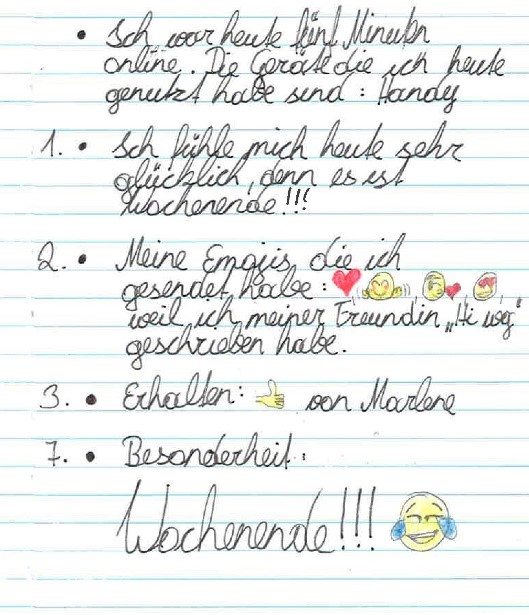 • Ich war heute fünf Minuten
online. Die Geräte die ich heute
genutzt habe sind : Handy
1. • Ich fühle mich heute sehr
glücklich, denn es ist
Wochenende!!!
2. • Meine Emojis, die ich
gesendet habe : ❤️🤗😘😍
weil ich meiner Freundin „Hi
geschrieben habe.
3. • Erhalten: 👍 von Marlene
7. • Besonderheit:
Wochenende!!! 😂